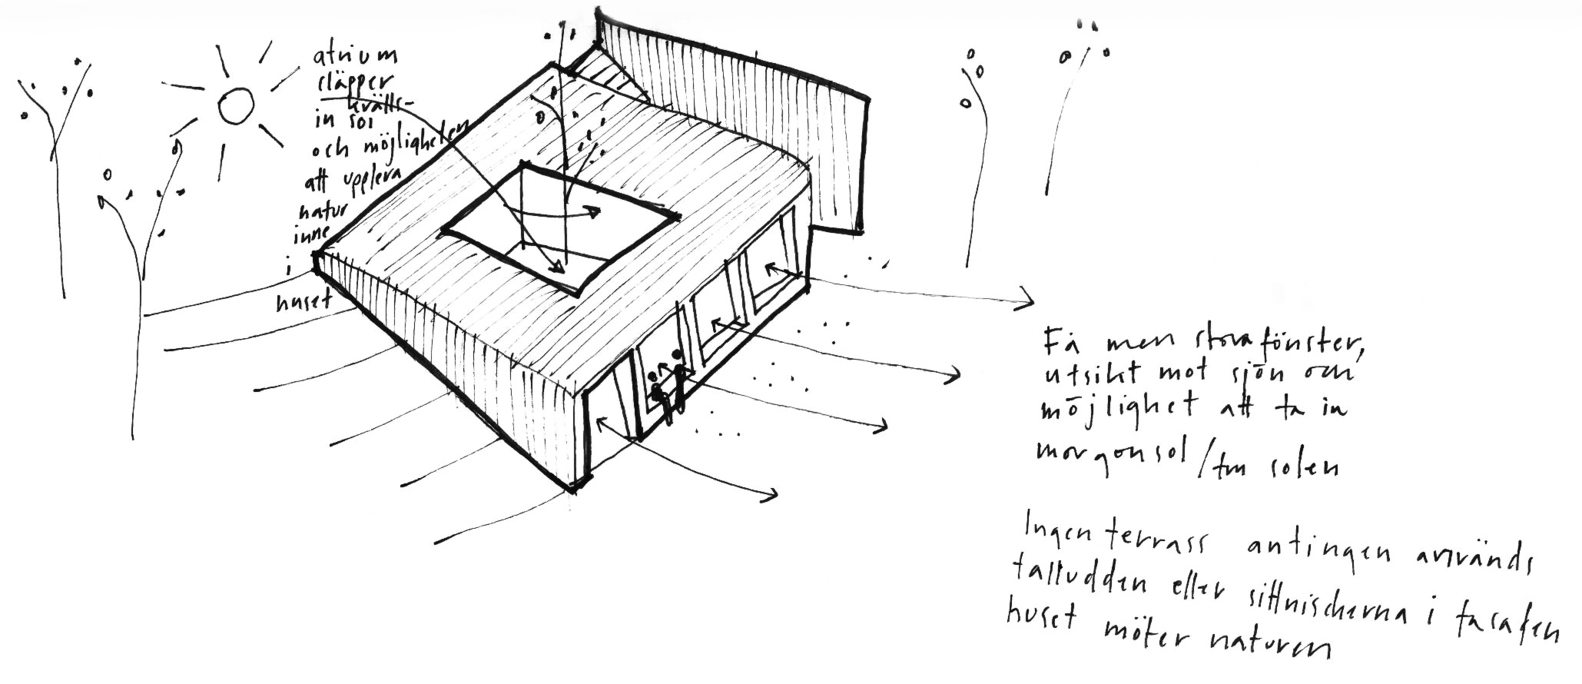 atrium
släpper
kvälls-
in sol
och möjligheten
att uppleva
natur
inne
i
huset
Få men stora fönster,
utsikt mot sjön och
möjlighet att ta in
morgonsol/fm solen
Ingen terrass antingen används
talludden eller sittnischerna i fasaden
huset möter naturen